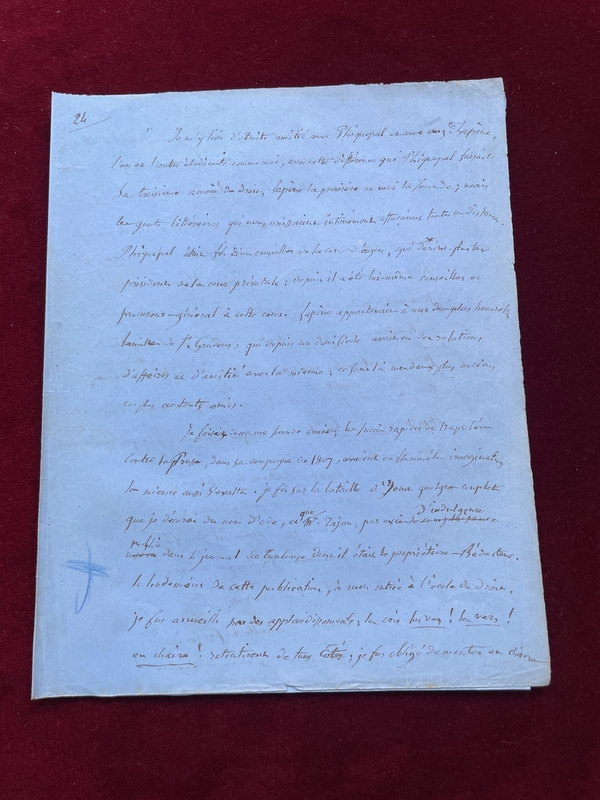 24
Je m'y liai d'étroite amitié avec Phiquepal et avec Lapène,
l'un et l'autre étudiants comme moi, avec cette différence que Phiquepal faisait
sa troisième année de droit, Lapène la première et moi la seconde ; mais
les goûts littéraires qui nous unissaient intimément effaçaient toute distance.
Phiquepal était fils d'un conseiller de la cour d'agen, qui devint plus tard
président de la cour prévotale ; depuis il a été lui-même conseiller et
procureur-général à cette cour. Lapène appartenait à une des plus honorables
familles de St Gaudens, qui depuis un demi siècle avaient des relations
d'affaires et d'amitié avec la mienne ; ce sont là mes deux plus anciens
et plus constants amis.
Je faisais ma seconde année ; les succès rapides de Napoléon
contre la Prusse, dans sa campagne de 1807, avaient enflammé les imaginations
la mienne aussi s'exalta : je fis sur la bataille d'Iena quelques couplets
que je décorai du nom d'ode, et que Mr Tajan, par excès d'indulgence
publia dans le journal de Toulouse dont il était le propriétaire-Rédacteur.
le lendemain de cette publication, à mon entrée à l'école de Droit,
je fus accueilli par des applaudissements ; les cris les vers ! les vers !
en chaire ! retentirent de tous côtés ; je fus obligé de monter en chaire